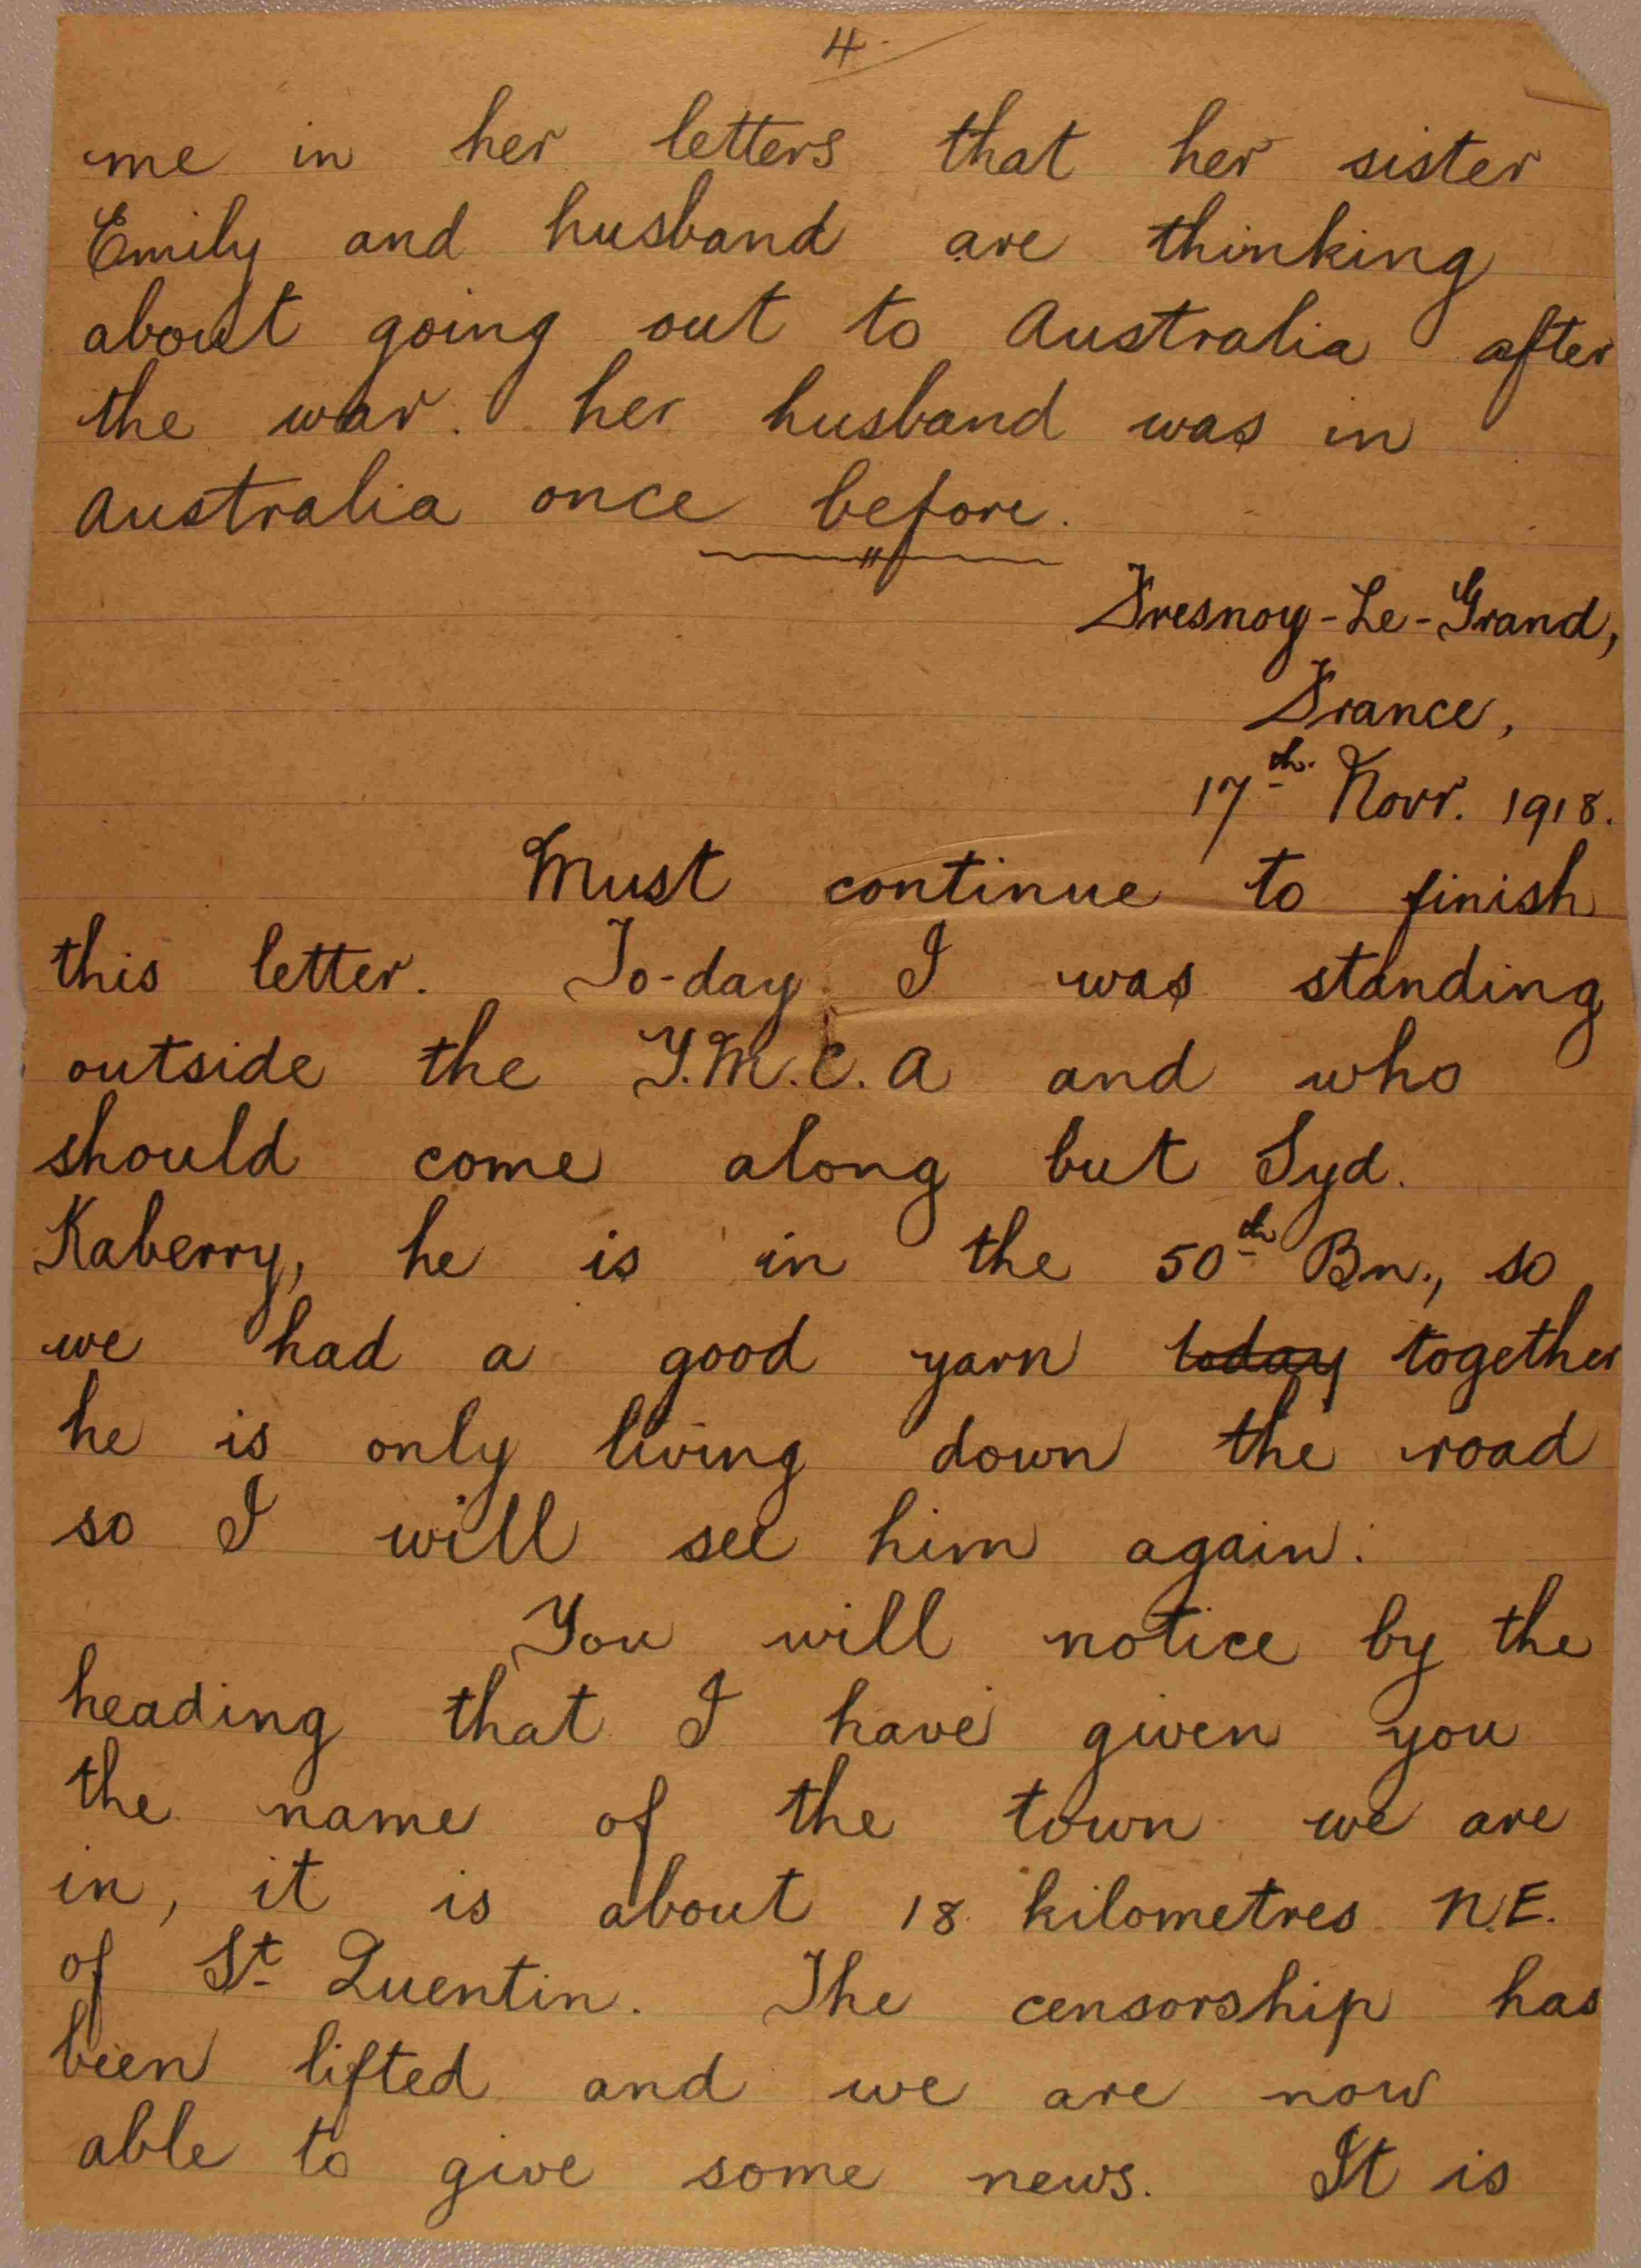 4.
me in her letters that her sister
Emily and husband are thinking
about going out to Australia after
the war. her husband was in
Australia once before.
Fresnoy-Le-Grand,
France,
17th. Novr. 1918.
Must continue to finish
this letter. To-day I was standing
outside the Y.M.C.A and who
should come along but Syd.
Kaberry, he is in the 50th Bn., so
we had a good yarn today together
he is only living down the road
so I will see him again.
You will notice by the
heading that I have given you
the name of the town we are
in, it is about 18 kilometres N.E.
of St Quentin. The censorship has
been lifted and we are now
able to give some news. It is